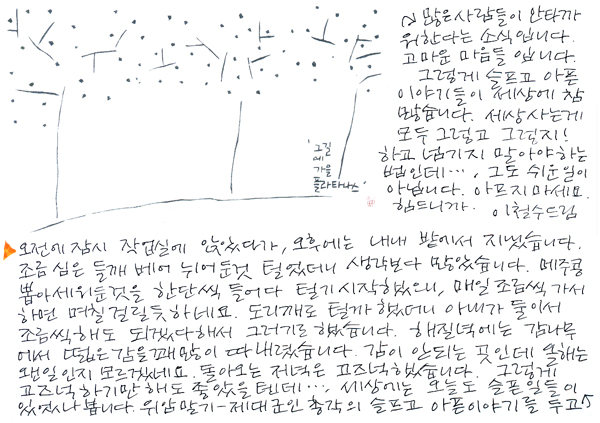 그길
에
가을
플라타나스
많은사람들이 안타까
워한다는 소식입니다.
고마운 마음들 입니다.
그렇게 슬프고 아픈
이야기들이 세상에 참
많습니다. 세상사는게
모두 그렇고 그렇지!
하고 넘기지 말아야하는
법인데…, 그도 쉬운일이
아닙니다. 아프지마세요.
힘드니까. 이철수드림
오전에 잠시 작업실에 앉았다가, 오후에는 내내 밭에서 지냈습니다.
조금 심은 들깨 베어 뉘어둔것 털었더니 생각보다 많았습니다. 메주콩
뽑아세워둔것을 한단씩 들어다 털기 시작했으니, 매일 조금씩 가서
하면 며칠 걸릴듯 하네요. 도리깨로 털까 했더니 아내가 둘이서
조금씩 해도 되겠다해서 그러기로 했습니다. 해질녘에는 감나무
에서 떫은감을 꽤 많이 따 내렸습니다. 감이 안되는 곳인데 올해는
왠일인지 모르겠네요. 돌아오는 저녁은 고즈넉했습니다. 그렇게
고즈넉하기만 해도 좋았을텐데…, 세상에는 오늘도 슬픈일들이
있었나봅니다. 위암말기-제대군인 총각의 슬프고 아픈이야기를 두고